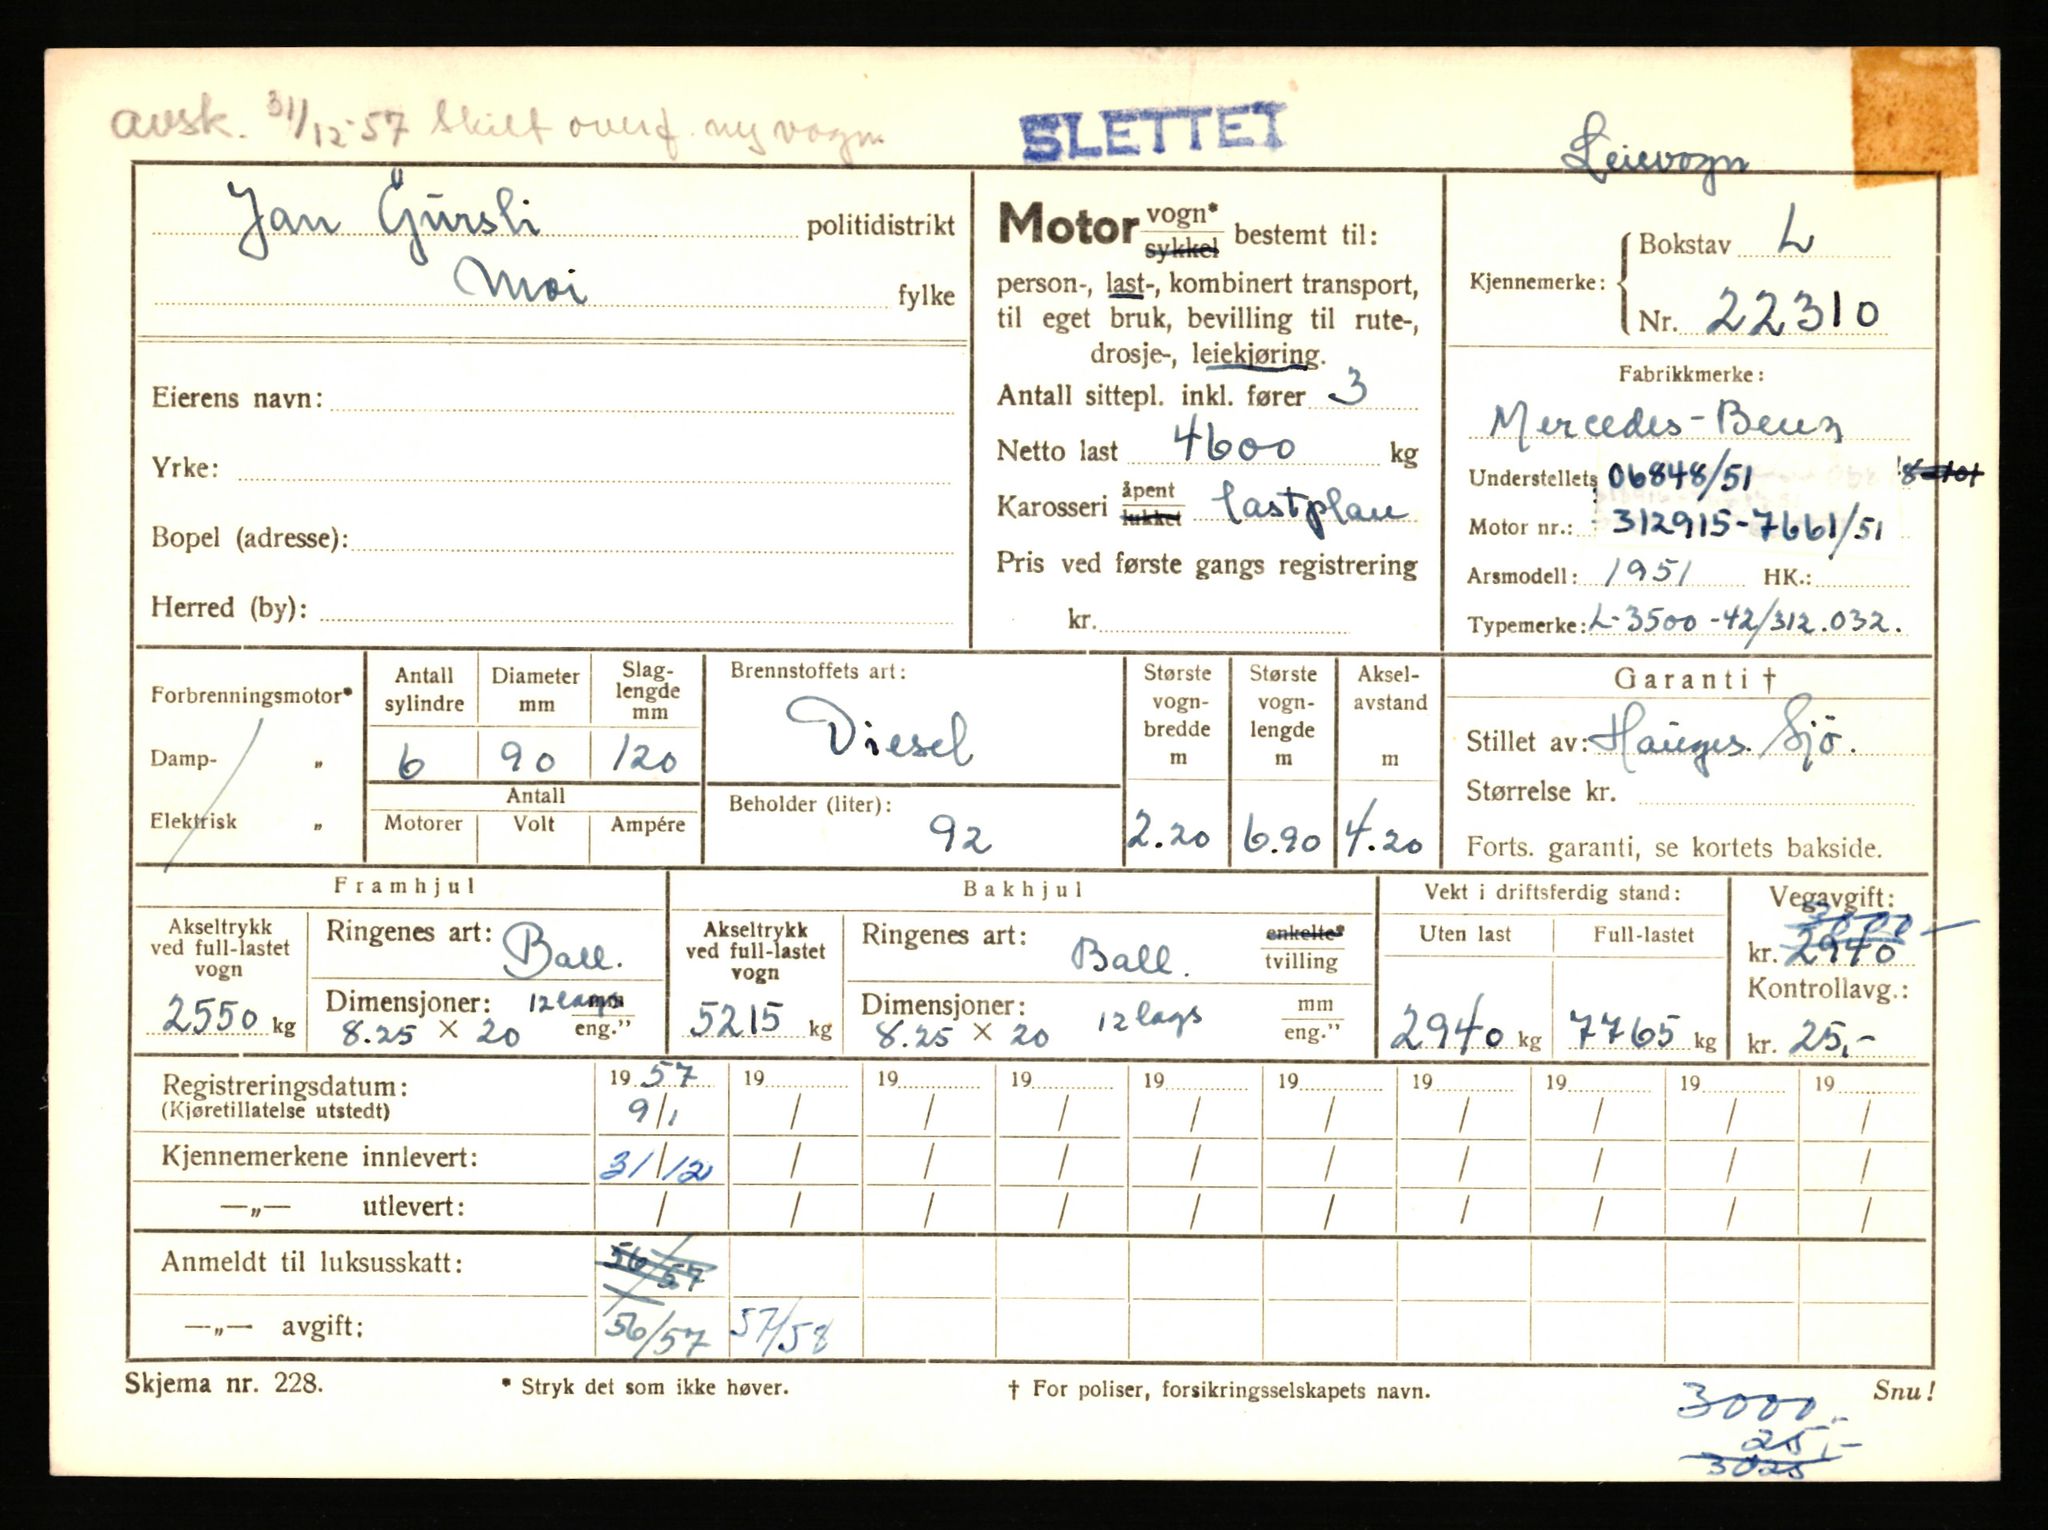 avsk. 31/12-57 Skilt overf. ny vogn
SLETTET
Leievogn
Jan Gursli politidistrikt
Moi fylke
Eierens navn:
Yrke:
Bopel (adresse):
Herred (by):
Motor vogn* sykkel bestemt til:
person-, last-, kombinert transport,
til eget bruk, bevilling til rute-,
drosje-, leiekjøring.
Antall sittepl. inkl. fører 3
Netto last 4600 kg
Karosseri åpent lukket lastplan
Pris ved første gangs registrering
kr.
Kjennemerke: Bokstav L
Nr. 22310
Fabrikkmerke:
Mercedes-Benz
Understellets 06848/51
Motor nr.: 312915-7661/51
Arsmodell: 1951 HK.:
Typemerke: L-3500-42/312.032.
Forbrenningsmotor*
Damp- „
Elektrisk „
Antall sylindre
Diameter mm
Slag-lengde mm
6 90 120
Antall
Motorer Volt Ampére
Brennstoffets art:
Diesel
Beholder (liter):
92
Største vogn-bredde m
2.20
Største vogn-lengde m
6.90
Aksel-avstand m
4.20
Garanti †
Stillet av: Hauges. Sjö.
Størrelse kr.
Forts. garanti, se kortets bakside.
Framhjul
Akseltrykk ved full-lastet vogn
2550 kg
Ringenes art: Ball.
Dimensjoner: 12 lags mm
8.25 × 20 eng.”
Bakhjul
Akseltrykk ved full-lastet vogn
5215 kg
Ringenes art: Ball. enkelte* tvilling
Dimensjoner: 12 lags mm
8.25 × 20 eng.”
Vekt i driftsferdig stand:
Uten last Full-lastet
2940 kg 7765 kg
Vegavgift:
3000
kr. 2940
Kontrollavg.:
kr. 25,-
Registreringsdatum: 19 57 19 19 19 19 19 19 19 19 19
(Kjøretillatelse utstedt) 9/1 / / / / / / / / /
Kjennemerkene innlevert: 31/12 / / / / / / / / /
—„— utlevert: / / / / / / / / / /
Anmeldt til luksusskatt: 56/57
—„— avgift: 56/57 57/58
Skjema nr. 228.
* Stryk det som ikke høver.
† For poliser, forsikringsselskapets navn.
Snu!
3000,-
25,-
3025